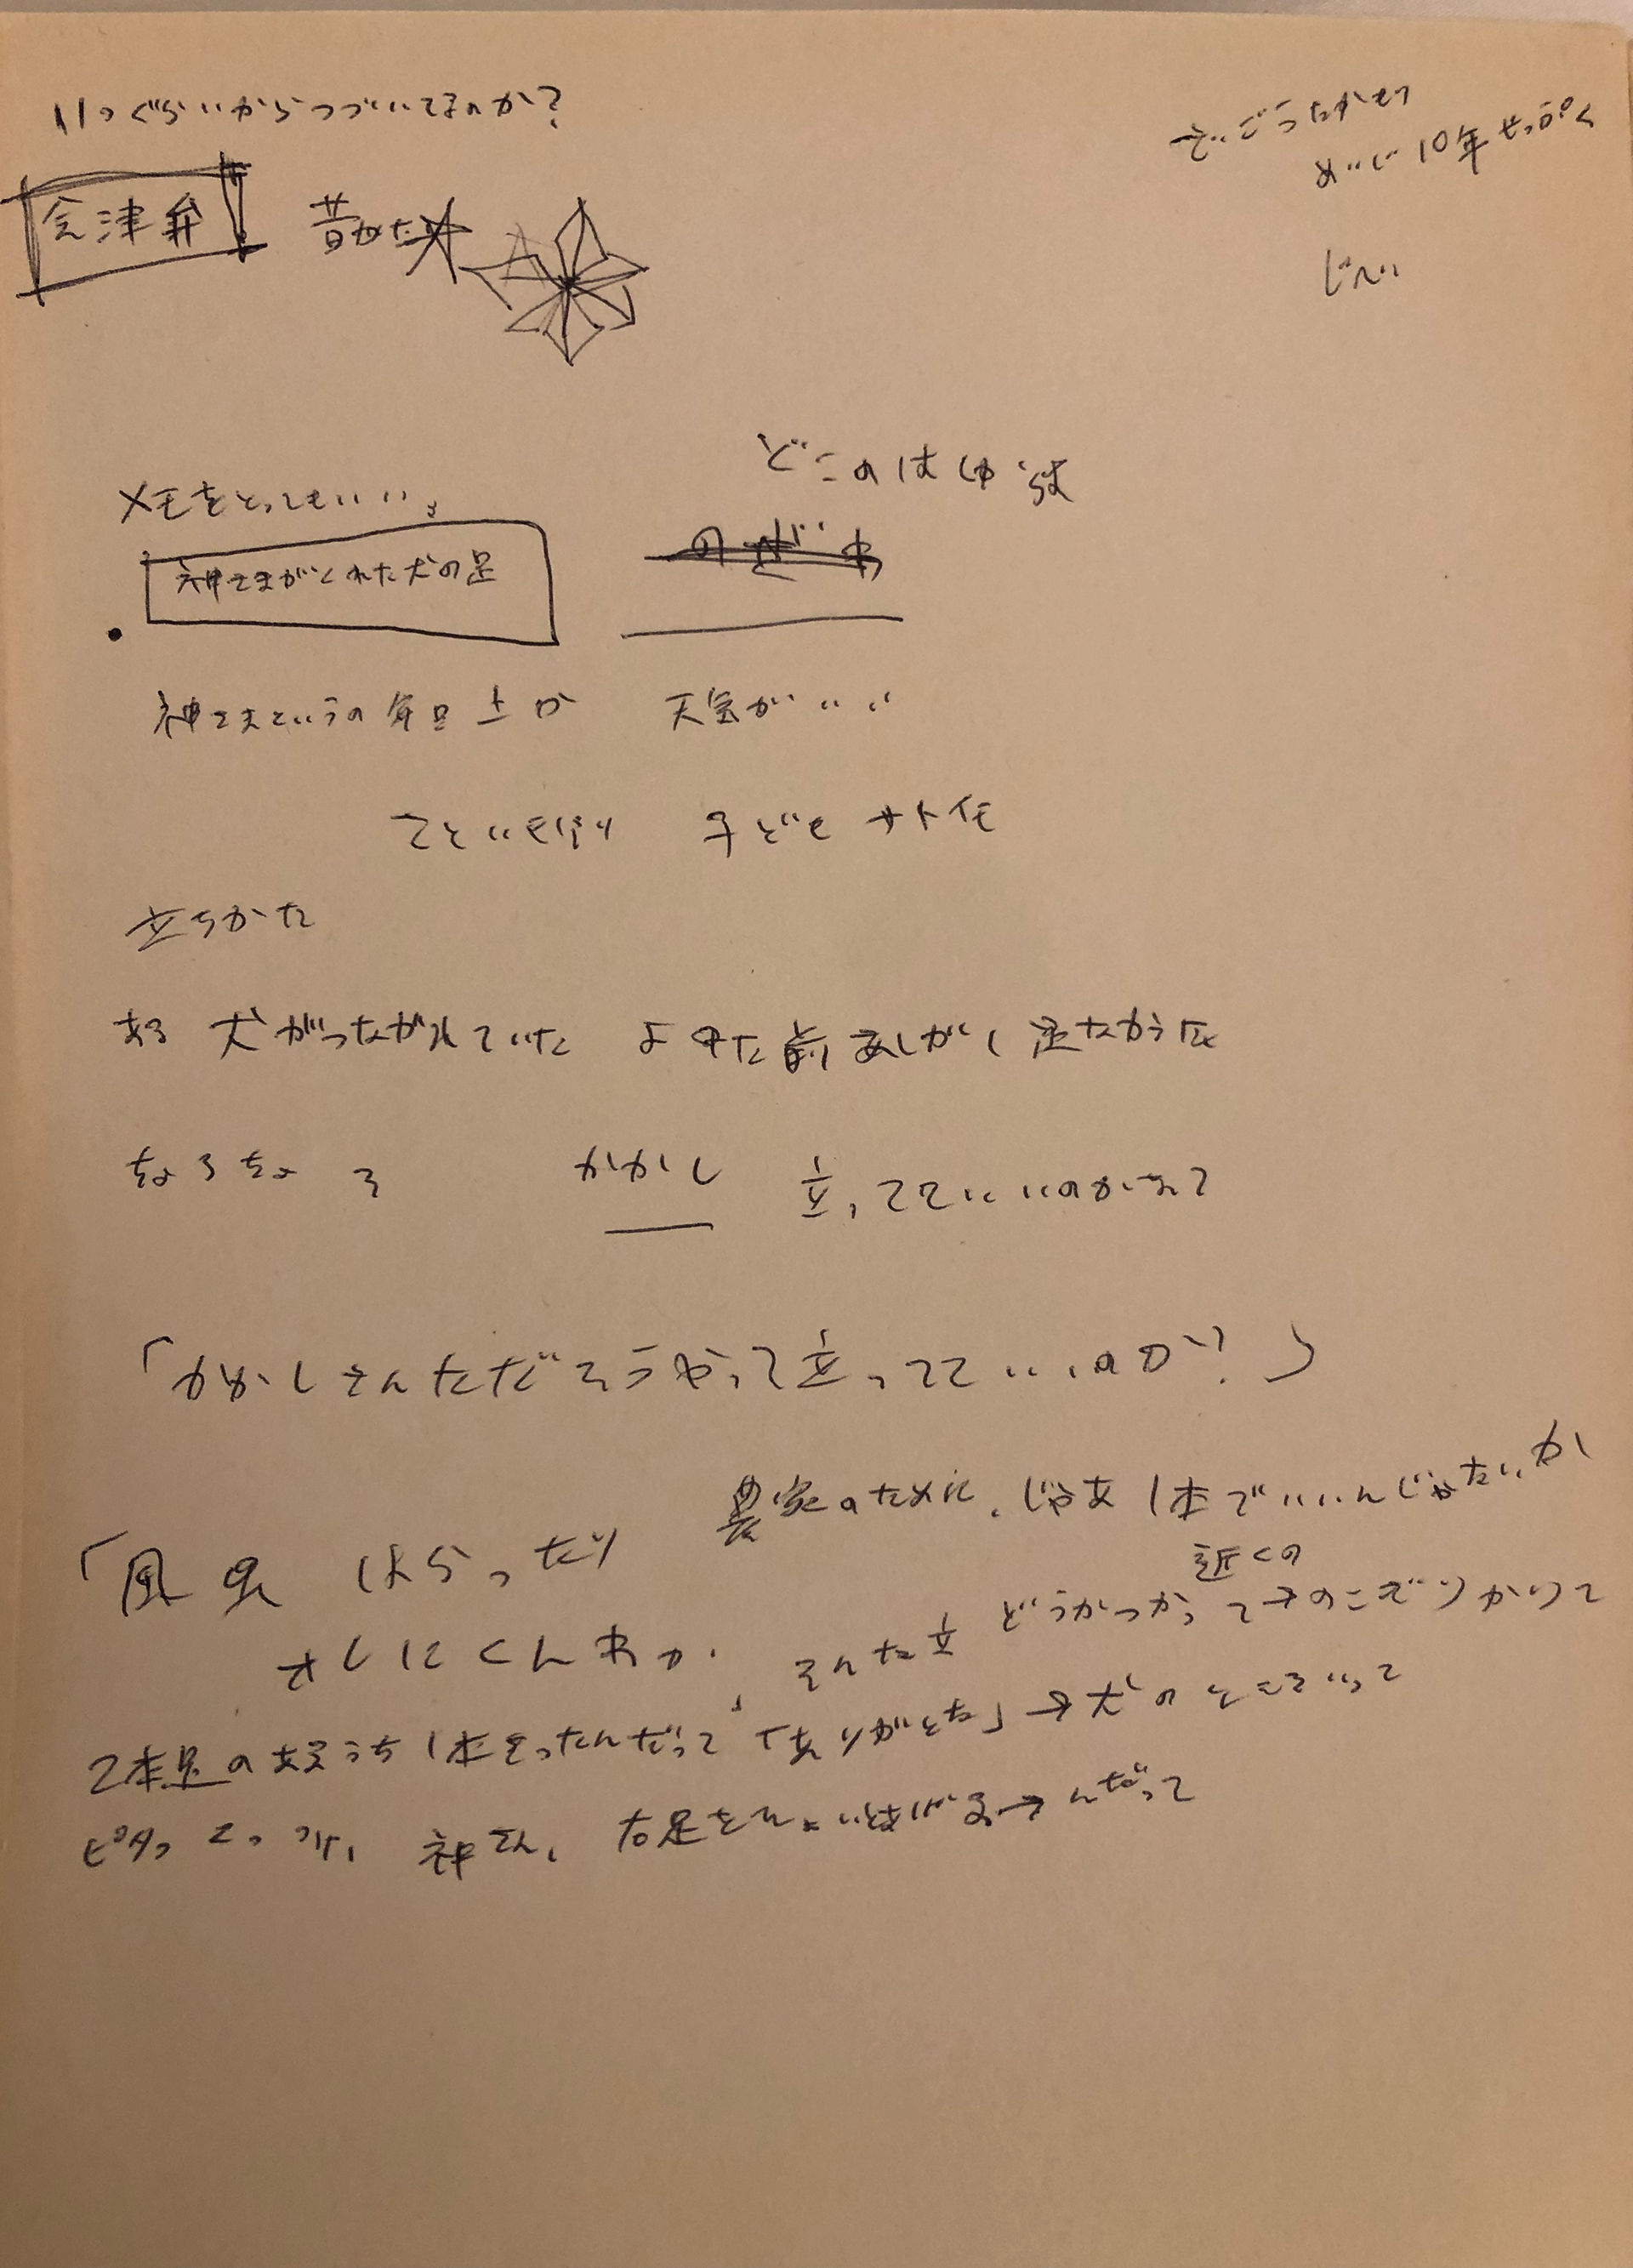 いつぐらいからつづいてるのか?
さいごうたかもり
めいじ10年せっぷく
会津弁 昔かた
じへい
どこのはゆらは
メモをとってもいい。
のざわ
神さまがくれた犬の足
神さまというの毎日 上か 天気がいい
子ども
立ちかた
ある 犬がつながれていた 前あしが1足なかった
ちょろちょろ かかし 立っててていいのかなって
「かかしさんただそうやって立っててていいのか?」
農家のために、じゃあ1本でいいんじゃないか
「風 虫 はらったり
近くの
オレにくんねか。 そんな立 どうかつかって→のこぎりかりて
2本足のあるうち1本をったんだって「ありがとな」→犬のところいって
ピタっとつけ、 神さん、 右足をひょいとあげる→んだって